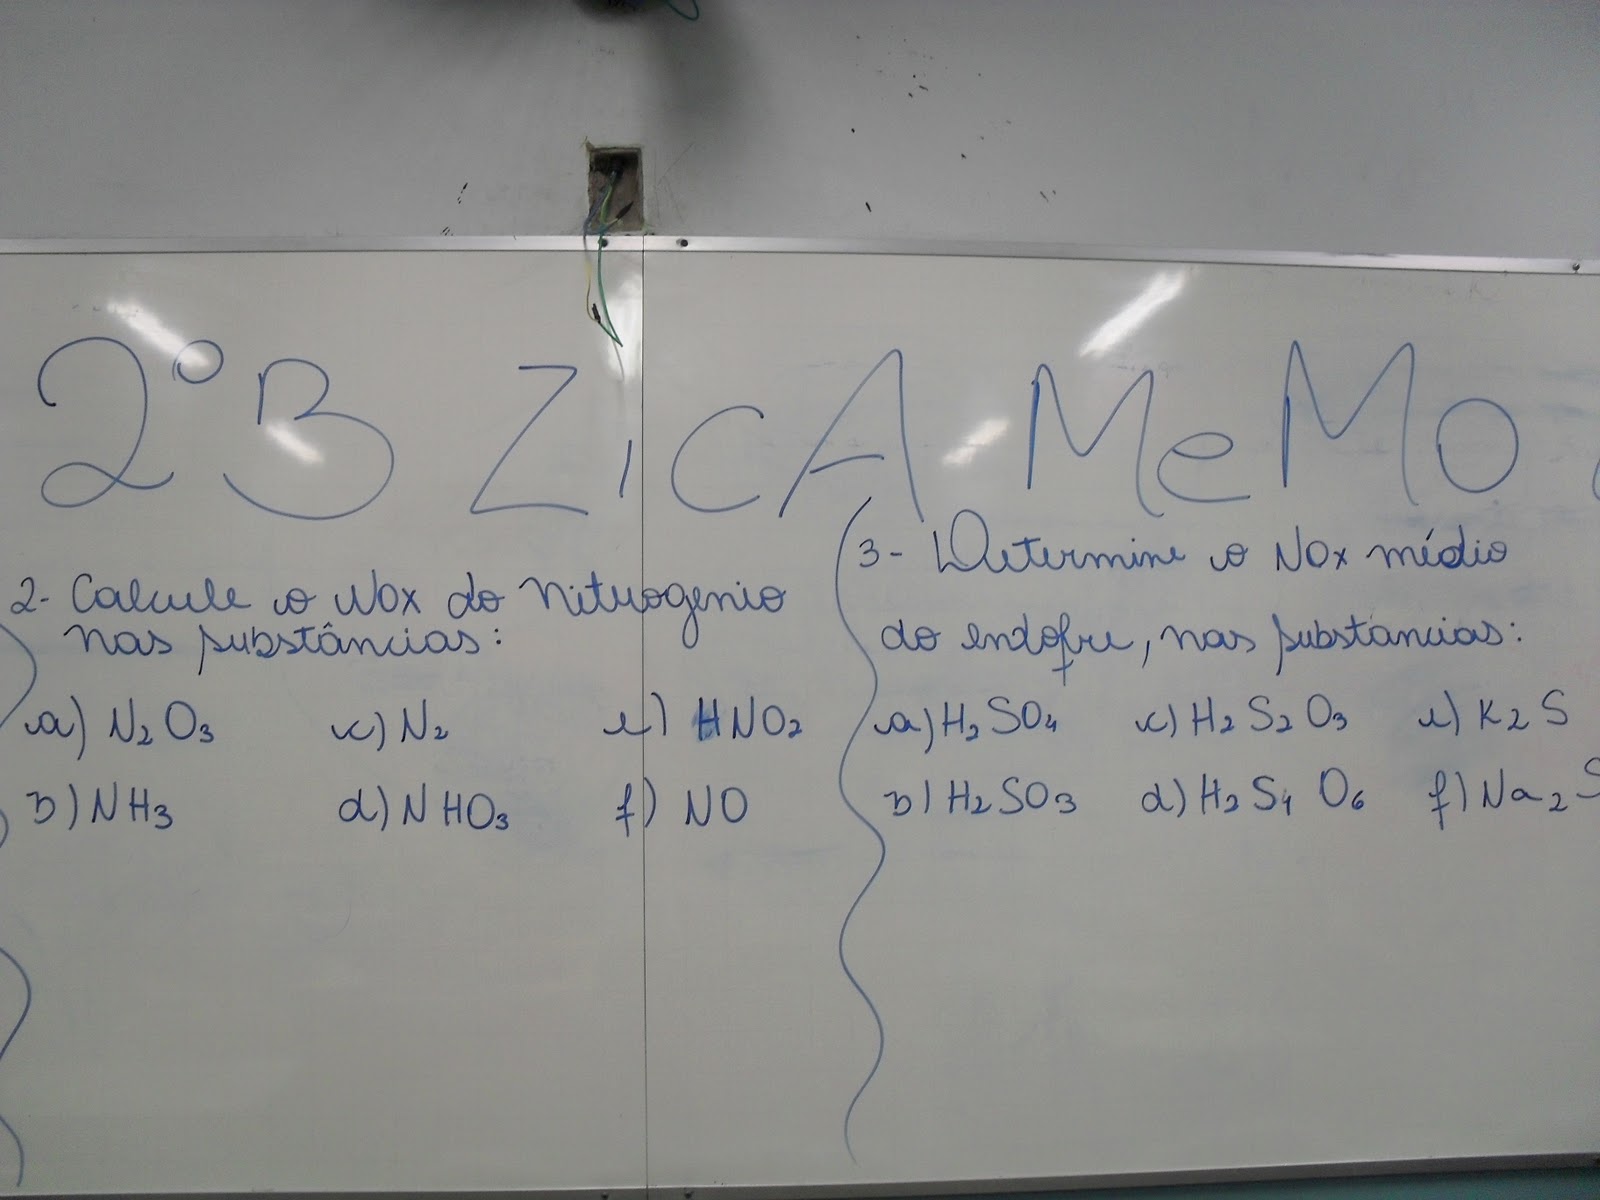 2º B ZiCA MeMO
2- Calcule o Nox do nitrogenio
nas substâncias:
a) N2O3 c) N2 e) HNO2
b) NH3 d) NHO3 f) NO
3- Determine o Nox médio
do enxofre, nas substancias:
a) H2SO4 c) H2S2O3 e) K2S
b) H2SO3 d) H2S4O6 f) Na2S